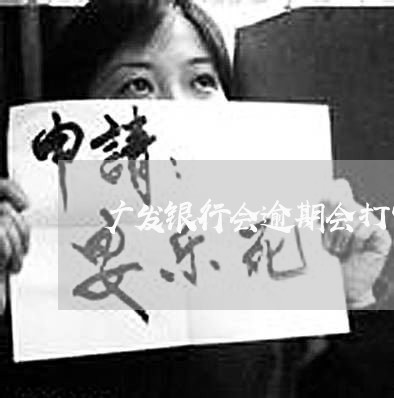 申請：
安乐死
广发银行会逾期会打